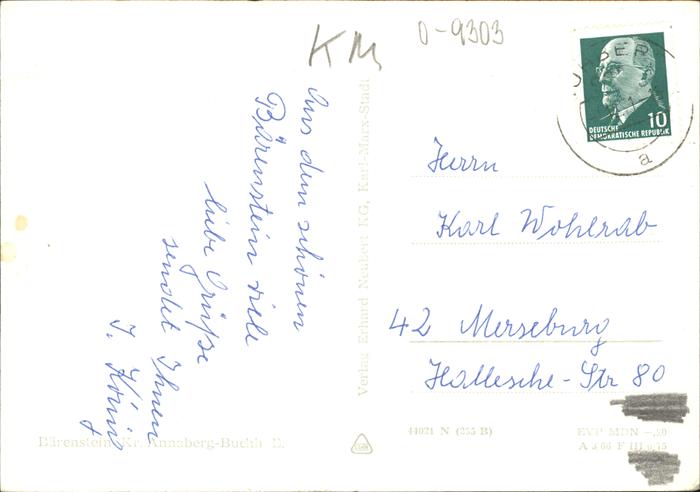 KM
0-9303
10
DEUTSCHE
DEMOKRATISCHE REPUBLIK
a
Aus dem schönen
Bärenstein viele
liebe Grüße
sendet Ihnen
J. König
Verlag Erhard Neubert KG, Karl-Marx-Stadt
Herrn
Karl Wohlrab
42 Merseburg
Hallesche-Str 80
Bärenstein, Kr. Annaberg-Buchh
44021 N (255 B)
EVP MDN -,20